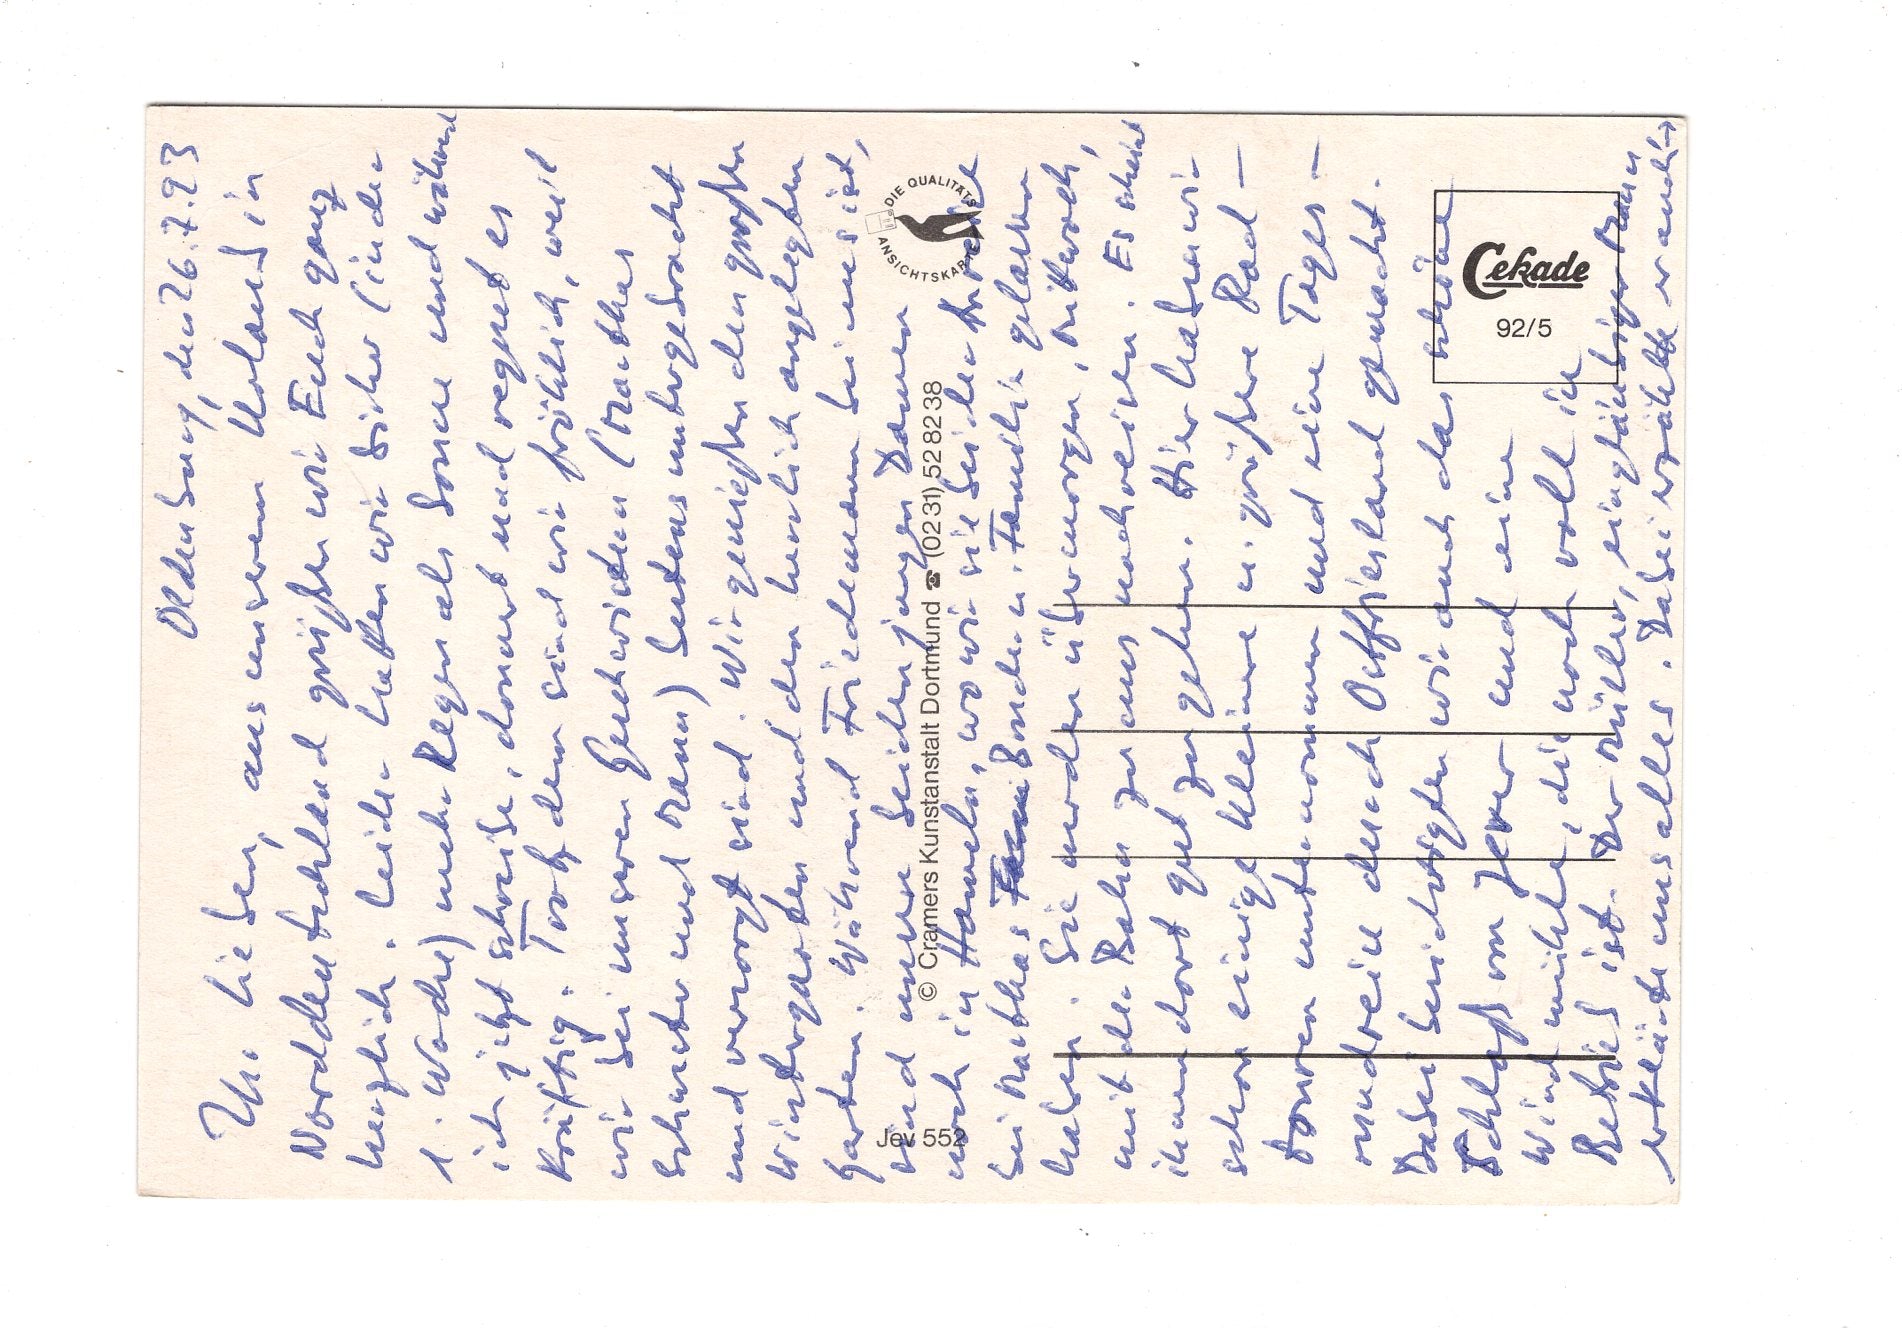 Oldenburg, den 26.7.93
Ihr Lieben, aus unserem Urlaub in
Norddeutschland grüßen wir Euch ganz
herzlich. Leider hatten wir bisher (in der
1. Woche) mehr Regen als Sonne und während
ich jetzt schreibe, donnert und regnet es
kräftig. Trotzdem sind wir fröhlich, weil
wir bei unseren Geschwistern (Marthas
Schwester und Mann) bestens untergebracht
und versorgt sind. Wir genießen den großen
Wintergarten und den herrlich angelegten
Garten. Während Friedemann bei uns ist,
sind unsere beiden jungen Damen
noch in Hameln, wo wir sie beide
bei Marthas Bruder u. Familie gelassen
haben. Sie werden übermorgen, Mittwoch,
mit der Bahn zu uns nachreisen. Es scheint
ihnen dort gut zu gehen. Hier haben wir
schon einige kleinere u. größere Rad-
touren unternommen und eine Tages-
rundreise durch Ostfriesland gemacht.
Dabei besichtigten wir auch das schöne
Schloß von Jever und eine
Windmühle, die noch voll in
Betrieb ist. Der Müller, ein
erklärte uns alles. Dabei erzählte er auch
© Cramers Kunstanstalt Dortmund ☎ (02 31) 52 82 38
Jev 552
DIE QUALITÄTS
ANSICHTSKARTE
Cekade
92/5